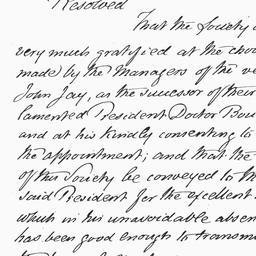 Resolved
That the Society
very much gratified at the
made by the Managers of the
John Jay, as the successor of their
lamented President Doctor
and at his kindly consenting to
the appointment; and that the
of this Society be conveyed to
said President for the excellent
which in his unavoidable
has been good enough to